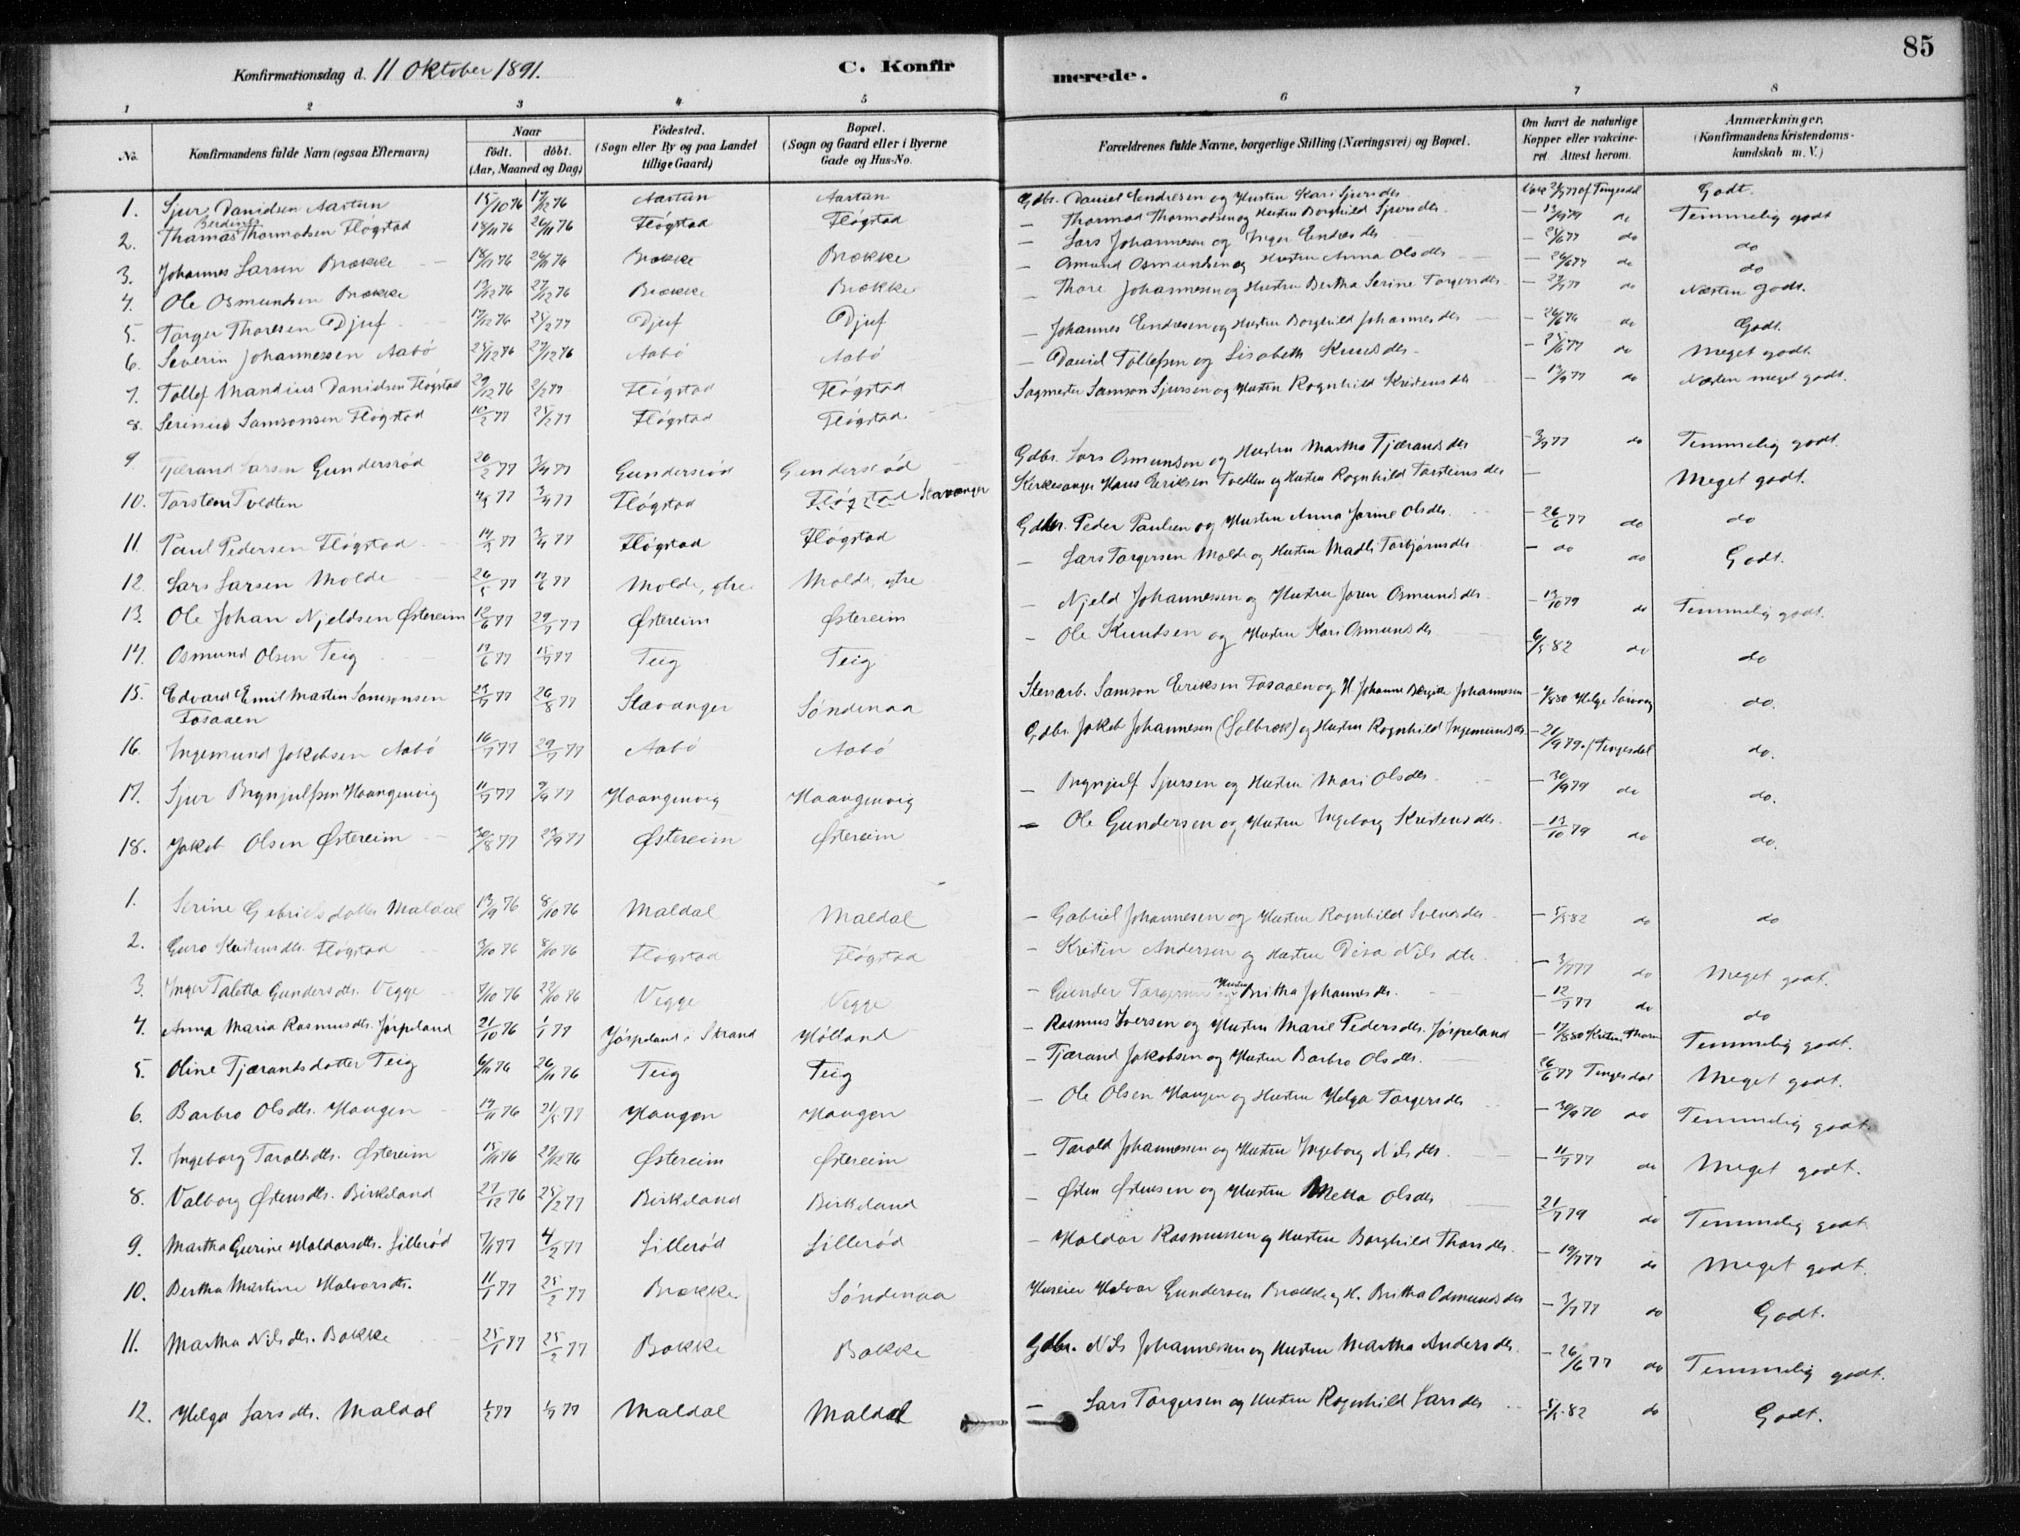 85
Konfirmationsdag d. 11 Oktober 1891. C. Konfirmerede.
1 2 3 4 5 6 7 8
No. Konfirmandens fulde Navn (ogsaa Efternavn) Naar født. døbt. (Aar, Maaned og Dag) Fødested. (Sogn eller By og paa Landet tillige Gaard) Bopæl. (Sogn og Gaard eller i Byerne Gade og Hus-No. Forældrenes fulde Navne, borgerlige Stilling (Næringsvei) og Bopæl. Om havt de naturlige Kopper eller vakcineret. Attest herom. Anmærkninger. (Konfirmandens Kristendomskundskab m. V.)
1. Sjur Danielsen Aartun 15/10 76 17/12 76 Aartun Aartun Gdbr. Daniel Endresen og Hustru Kari Sjursdtr Tengesdal Godt.
2. Thomas Berdines Thormodsen Fløgstad 26/11 76 Fløgstad Fløgstad – Thormod Thormodsen og Hustru Borghild Sjursdtr. do Temmelig godt
3. Johannes Larsen Brække 26/11 76 Brække Brække – Lars Johannesen og Inger Endresdtr – do do
4. Ole Osmundsen Brække 27/12 76 Brække Brække – Osmund Osmundsen og Hustru Anna Olsdtr – 26/6 77 do do
5. Torger Thoresen Djuf 17/12 76 25/2 77 Djuf Djuf – Thore Johannesen og Hustru Bertha Serine Torgersdtr. do Næsten godt.
6. Severin Johannessen Aabø 25/12 76 27/12 76 Aabø Aabø – Johannes Endresen og Hustru Borghild Johannesdtr do Godt.
7. Tollef Mandius Danielsen Fløgstad 29/12 76 Fløgstad Fløgstad – Daniel Tollefsen og Lisabeth Knudsdtr. – do Meget godt.
8. Serinius Samsonsen Fløgstad 10/2 77 25/2 77 Fløgstad Fløgstad Sagmester Samson Sjursen og Hustru Rognhild Kristensdtr do Næsten meget godt.
9. Tjærand Larsen Gundersrød 26/2 77 3/4 77 Gundersrød Gundersrød Gdbr. Lars Osmundsen og Hustru Martha Tjærandsdtr – 3/7 77 do Temmelig godt.
10. Torsten Tveldten 3/4 77 Fløgstad Fløgstad Stavanger Kirkesanger Hans Eriksen Tveldten og Hustru Rognhild Torsteinsdtr – Meget godt.
11. Paul Pedersen Fløgstad 3/4 77 Fløgstad Fløgstad Gdbr. Peder Paulsen og Hustru Anna Jorine Olsdtr. – 26/6 77 do do
12. Lars Larsen Molde 26/5 77 17/6 77 Molde, ytre Molde, ytre – Lars Torgersen Molde og Hustru Madli Torbjørnsdtr – do do Godt.
13. Ole Johan Njeldsen Østereim 12/6 77 29/7 77 Østereim Østereim – Njeld Johannessen og Hustru Joren Osmundsdtr. – 13/10 79 do Temmelig godt.
14. Osmund Olsen Teig 17/6 77 15/7 77 Teig Teig – Ole Knudsen og Hustru Kari Osmundsdtr 6/5 82 do do
15. Edvard Emil Martin Samsonsen Fosaaen 23/7 77 26/8 77 Stavanger Søndenaa Stenarb. Samson Eriksen Fosaaen og H. Johanne Bergitte Johannesen – Helge do.
16. Ingemund Jakobsen Aabø 16/7 77 29/7 77 Aabø Aabø Gdbr. Jakob Johannesen (Solbræk) og Hustru Rognhild Ingemundsdtr – 21/9 79. (Tengesdal do.
17. Sjur Brynjulfsen Haangenvig 11/7 77 9/9 77 Haangenvig Haangenvig – Brynjulf Sjursen og Hustru Mari Olsdtr. – 30/9 79 do do.
18. Jakob Olsen Østereim 30/8 77 23/9 77 Østereim Østereim – Ole Gundersen og Hustru Ingeborg Kristensdtr. – 13/10 79 do do.
1. Serine Gabrielsdatter Maldal 13/9 76 8/10 76 Maldal Maldal – Gabriel Johannesen og Hustru Rognhild Svensdtr. – 5/5 82 do do
2. Guro Kristensdtr. Fløgstad 3/10 76 8/10 76 Fløgstad Fløgstad – Kristen Andersen og Hustru Disa Nilsdtr. – 3/7 77 do Meget godt.
3. Inger Taletta Gundersdtr. Vegge 7/10 76 22/10 76 Vegge Vegge – Gunder Torgersen Hustru Britha Johannesdtr. – 12/7 77 do do
4. Anna Maria Rasmusdtr. Jørpeland 21/10 76 1/1 77 Jørpeland i Strand Hølland – Rasmus Iversen og Hustru Marie Pedersdtr. Jørpeland – Temmelig godt.
5. Oline Tjærandsdatter Teig 6/11 76 26/11 76 Teig Teig – Tjærand Jakobsen og Hustru Barbro Olsdtr. 26/6 77 Tengesdal Meget godt.
6. Barbro Olsdtr. Haugen 19/11 76 21/5 77 Haugen Haugen – Ole Olsen Haugen og Hustru Helga Torgersdtr – do Temmelig godt.
7. Ingeborg Taroldsdtr. Østereim 15/11 76 27/12 76 Østereim Østereim – Tarold Johannessen og Hustru Ingeborg Nilsdtr. – 11/7 77 do Meget godt.
8. Valborg Østensdtr. Birkeland 27/12 76 25/2 77 Birkeland Birkeland – Østen Østensen og Hustru Metta Olsdtr 21/7 79 do Temmelig godt.
9. Martha Gurine Haldorsdtr. Lillerød 7/1 77 4/2 77 Lillerød Lillerød – Haldor Rasmussen og Hustru Borghild Thorsdtr. – 19/7 77 do Meget godt.
10. Bertha Martine Halvorsdtr. 11/1 77 25/2 77 Brække Søndenaa Huseier Halvor Gundersen Brække og H. Britha Odmundsdtr – 3/7 77 do Godt.
11. Martha Nilsdtr. Bakke 25/1 77 25/2 77 Bakke Bakke Gdbr. Nils Johannesen og Hustru Martha Andersdtr. – 26/6 77 do Temmelig godt.
12. Helga Larsdtr. Maldal Maldal Maldal – Lars Torgersen og Hustru Rognhild Larsdtr – 5/5 82 do Godt.